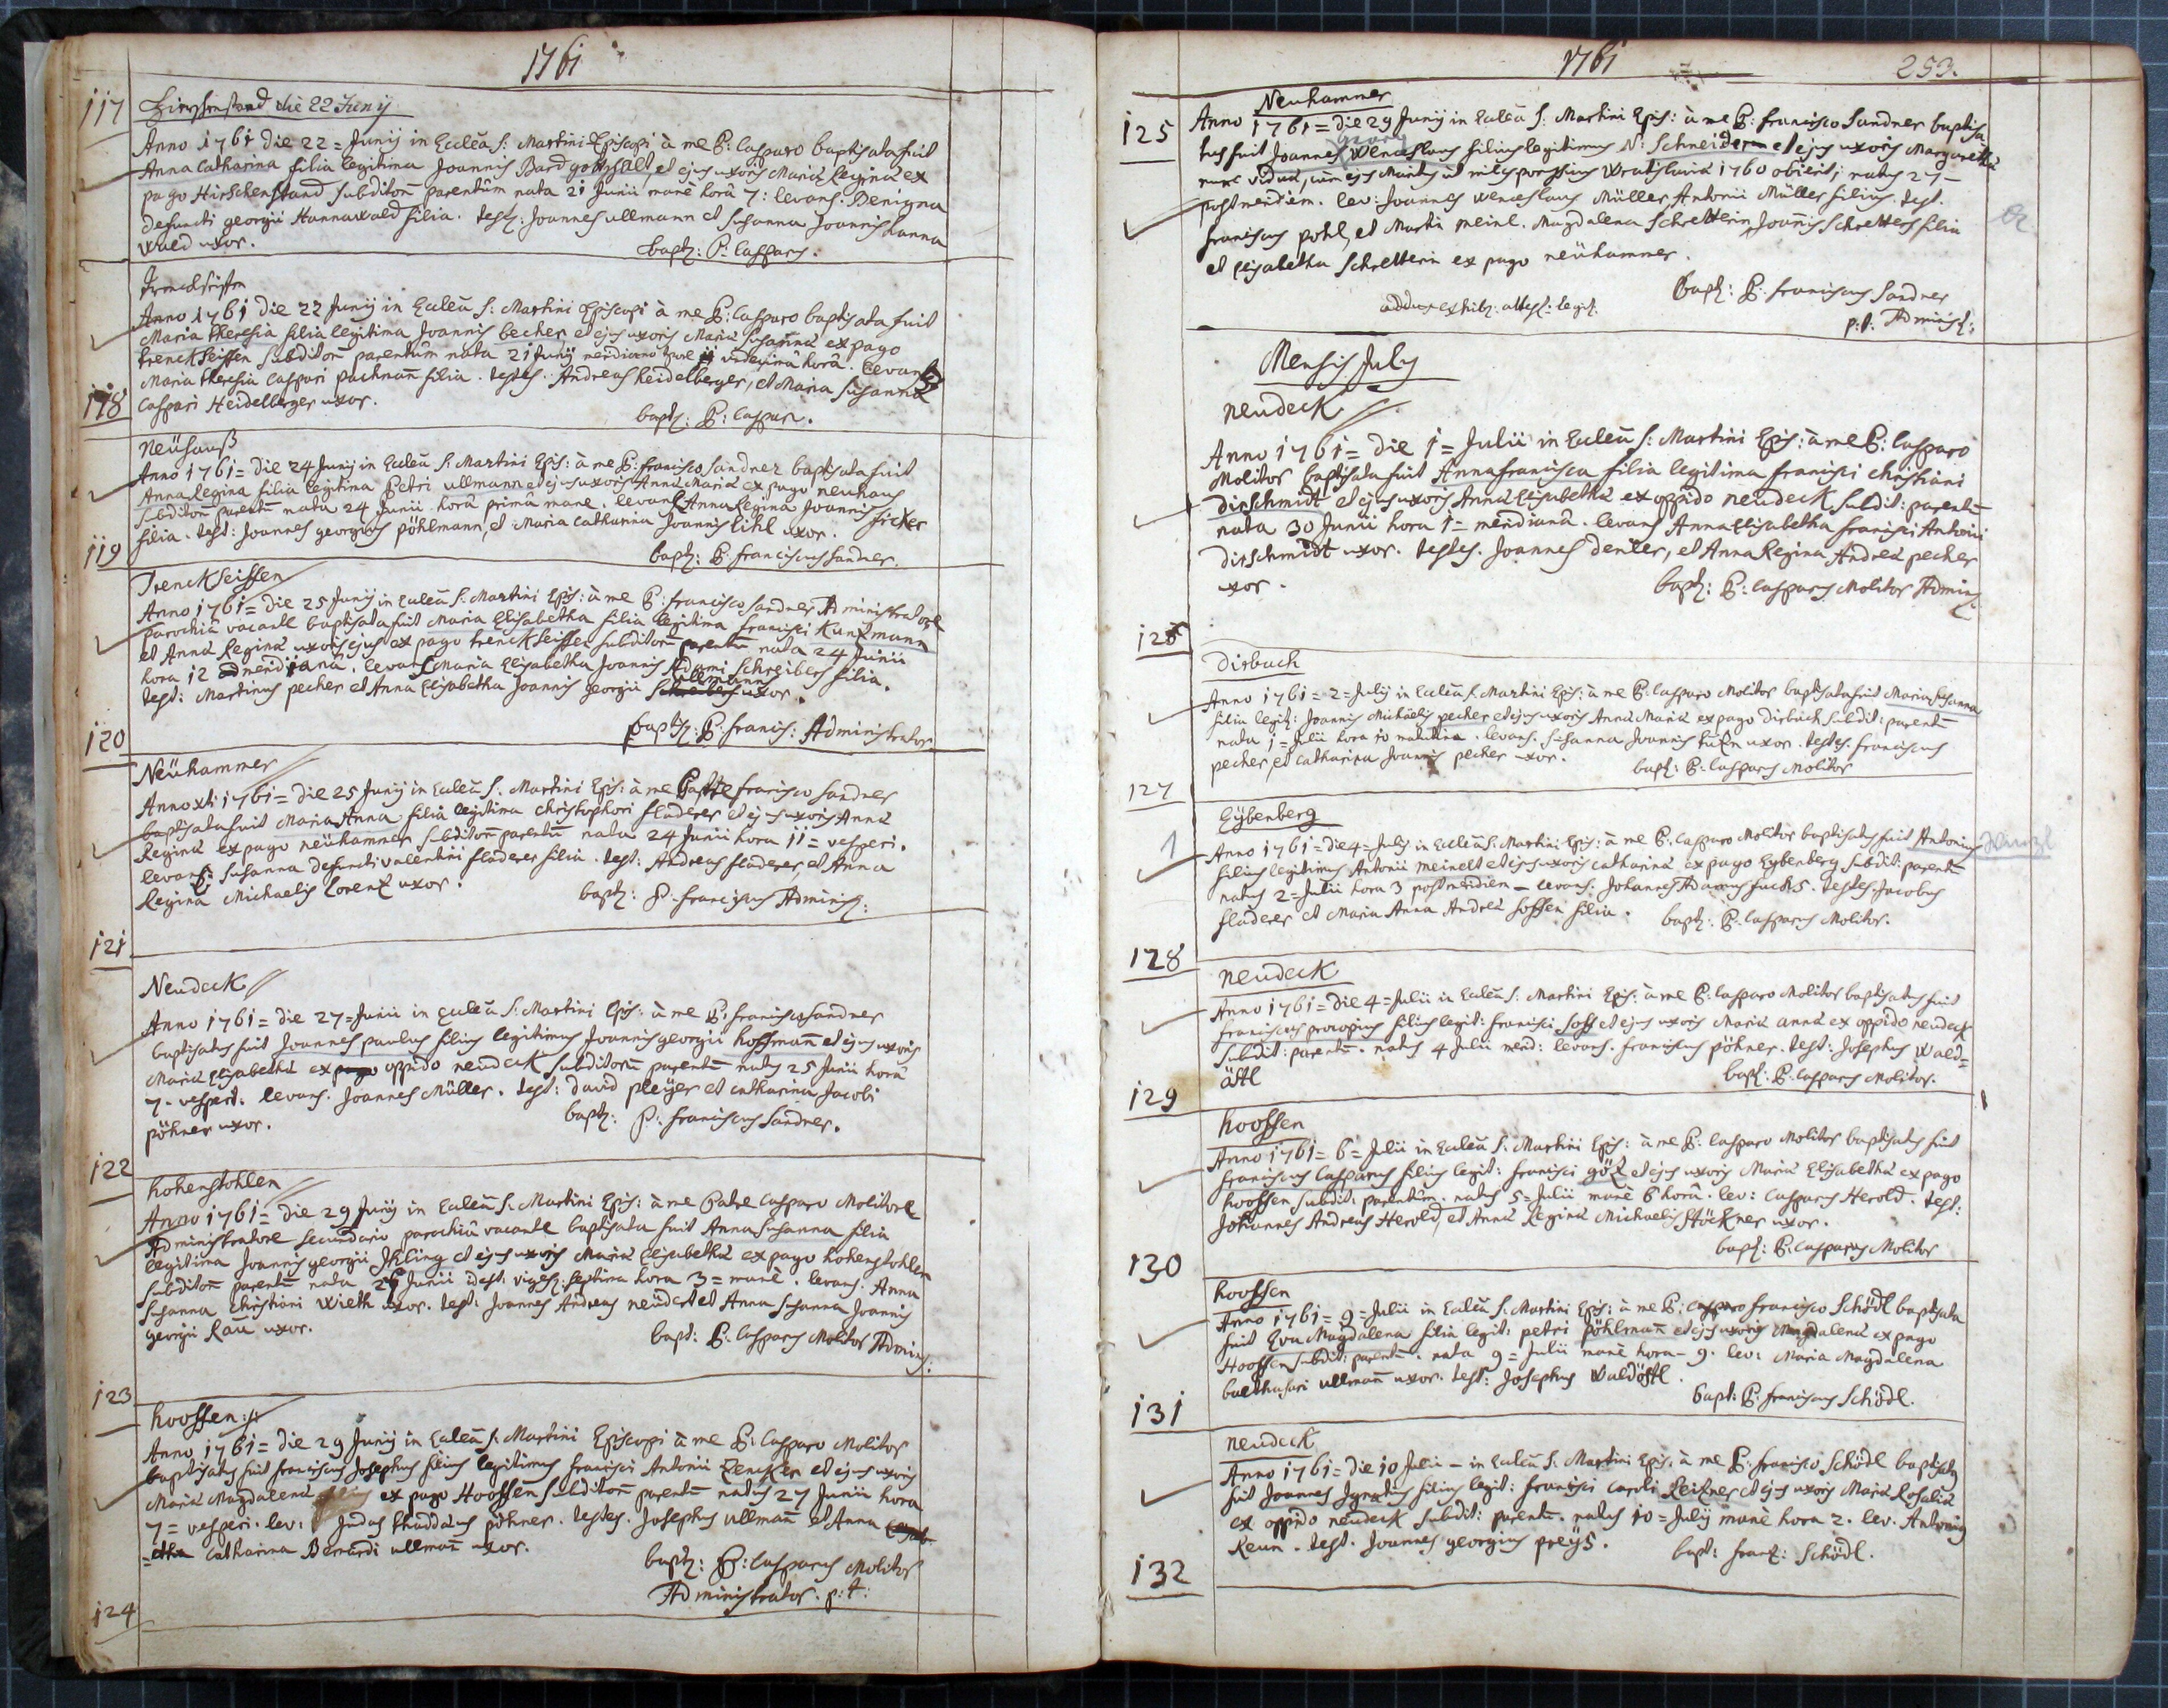 1761
117
Hirschenstand die 22 Junij
Anno 1761 die 22 = Junij in Eccleâ S: Martini Episcopi à me P: Casparo baptisata fuit
Anna Catharina filia legitima Joannis Bard gottsfalt, et ejus uxoris Mariæ Reginæ ex
pago Hirschenstand subditorũ parentum nata 21 Junii manè horâ 7: levans: Benigna
defuncti georgii Hannawald filia. test: Joannes ullmann et Susanna Joannis Hanna
wald uxor.
bapt: P: Casparus.
Anno 1761 die 22 Junij in Eccleâ S: Martini Episcopi à me P: Casparo baptisata fuit
Maria Theresia filia legitima Joannis becher et ejus uxoris Mariæ Susannæ ex pago
trenckseiffen subditorũ parentum nata 21 Junij undecimâ horâ. levans
Maria Theresia Caspari puchmañ filia. testes. Andreas heidelberger, et Maria Susanna
118
Caspari Heidelberger uxor.
bapt: P: Caspar.
Neühauß
Anno 1761 = die 24 Junij in Eccleâ S: Martini Epis: à me P: Francisco Sandner baptisata fuit
Anna Regina filia legitima Petri ullmann et ejus uxoris Annæ Mariæ ex pago neuhaus
subditorũ parentũ nata 24 Junii horâ primâ mane. levans Anna Regina Joannis ficker
filia. test: Joannes georgius pöhlmann, et Maria Catharina Joannis lihl uxor.
119
bapt: P: franciscus Sandner.
Trenckseiffen
Anno 1761 = die 25 Junij in Eccleâ S: Martini Epis: à me P: francisco Sandner Administratore
parochiâ vacante baptisata fuit Maria Elisabetha filia legitima francisci Kunzmann
et Annæ Reginæ uxoris ejus ex pago trenckseiffen subditorũ parentũ nata 24 Junii
hora 12 meridianâ. levans Maria Elisabetha Joannis Adami Schreibers filia.
Killmann
test: Martinus pecher et Anna Elisabetha Joannis georgii Schreibers uxor.
120
bapt: P: francis: Administrator.
Neühammer
Anno xti 1761 = die 25 Junij in Eccleâ S: Martini Epis: à me Patre francisco Sandner
baptisata fuit Maria Anna filia legitima christophori fladerer et ejus uxoris Annæ
Reginæ ex pago neühammer subditorũ parentũ nata 24 Junii hora 11 = vesperi.
levans: Susanna defuncti valentini fladerer filia. test: Andreas fladerer, et Anna
Regina Michaelis Lorenz uxor.
bapt: P. franciscus Adminis:
121
Neudeck
Anno 1761 = die 27 = Junii in Eccleâ S: Martini Epis: à me P: francisco Sandner
baptisatus fuit Joannes paulus filius legitimus Joannis georgii hoffmañ et ejus uxoris
Mariæ Elisabethæ ex pago oppido neudeck subditorũ parentũ natus 25 Junii horâ
7. vesperi. levans. Joannes Müller. test: david pleÿer et catharina Jacobi
pöhner uxor.
bapt: P: franciscus Sandner.
122
hohenstohlen
Anno 1761 = die 29 Junij in Eccleâ S. Martini Epis: à me Patre Casparo Molitore
Administratore secundario parochiâ vacante baptisata fuit Anna Susanna filia
legitima Joannis georgii Ihling et ejus uxoris Mariæ Elisabethæ ex pago hohenstohlen
subditorũ parentũ nata 27 Junii idest: viges: septima hora 3 = manè. levans. Anna
Susanna Christiani Wieth uxor. test: Joannes Andreas neüdert et Anna Susanna Joannis
georgii Rau uxor.
bapt: P. Casparus Molitor Adminis:
123
hooffen
Anno 1761 = die 29 Junij in Eccleâ S. Martini Episcopi à me P: Casparo Molitor
baptisatus fuit franciscus Josephus filius legitimus francisci Antonii Zencker et ejus uxoris
Mariæ Magdalenæ ex pago Hooffen subditorũ parentũ natus 27 Junii hora
7 = vesperi. lev: Judas thaddæus pöhner. testes. Josephus ullmañ et Anna
catharina Bernardi ullmañ uxor.
bapt: P: Casparus Molitor
Administrator. p: t:
124
1761
253.
125
Neuhammer
Anno 1761 = die 29 Junij in Eccleâ S: Martini Epis: à me P: francisco Sandner baptisa-
tus fuit Joannes Wenceslaus filius legitimus N: Schneider et ejus uxoris Margarethæ
nunc viduæ, cum ejus Maritus ut miles porussicus Wratislaviæ 1760 obierit; natus 27 –
postmeridiem. lev: Joannes wenceslaus Müller Antonii Müller filius. test.
franciscus pohl, et Martin meinl. Magdalena Schretterin Joannis Schretters filia
et Elisabetha Schretterin ex pago neühammer.
bapt: P: franciscus Sandner
p: t: Adminis:
Mensis July
neudeck
Anno 1761 = die 1 = Julii in Eccleâ S: Martini Epis: à me P: Casparo
Molitor baptisata fuit Anna francisca filia legitima francisci christiani
dirschmidt et ejus uxoris Annæ Elisabethæ ex oppido neudeck subdit: parentũ
nata 30 Junii hora 1 = meridianâ. levans Anna Elisabetha francisci Antonii
dirschmidt uxor. testes. Joannes denler, et Anna Regina Andreæ pecher
uxor.
bapt: P: Casparus Molitor Adminis.
126
dirbach
Anno 1761 = 2 = Julij in Eccleâ S. Martini Epis: à me P: Casparo Molitor baptisata fuit Maria Susanna
filia legit: Joannis Michaelis pecher et ejus uxoris Annæ Mariæ ex pago dirbach subdit: parentũ
nata 1 = Julii hora 10 matutina. levans. Susanna Joannis uxor. testes. franciscus
pecher, et catharina Joannis pecher uxor.
bapt: P: Casparus Molitor
127
Eÿbenberg
1
Anno 1761 = die 4 = Julij in Eccleâ S: Martini Epis: à me P. Casparo Molitor baptisatus fuit Antonius
filius legitimus Antonii meinelt et ejus uxoris catharinæ ex pago Eÿbenberg subdit: parentũ
natus 2 = Julii hora 3 postmeridiem – levans. Johannes Adamus fuchs. testes. Jacobus
fladerer et Maria Anna Andreæ soffen filia.
bapt: P. Casparus Molitor.
128
neudeck
Anno 1761 = die 4 = Julii in Eccleâ S: Martini Epis: à me P: Casparo Molitor baptisatus fuit
franciscus procopius filius legit: francisci foss et ejus uxoris Mariæ annæ ex oppido neudeck
subdit: parentũ. natus 4 Julii merid: levans. franciscus pöhner. test: Josephus Wald=
östl
bapt: P. Casparus Molitor.
129
hooffen
Anno 1761 = 6 = Julii in Eccleâ S: Martini Epis: à me P: Casparo Molitor baptisatus fuit
franciscus Casparus filius legit: francisci götz et ejus uxoris Mariæ Elisabethæ ex pago
hooffen subdit: parentum. natus 5 = Julii manè 6 horâ. lev: Casparus Herold. test:
Johannes Andreas Herold, et Anna Regina Michaelis Stöckner uxor.
bapt: P: Casparus Molitor
130
hooffen
Anno 1761 = 9 = Julii in Eccleâ S. Martini Epis: à me P: Casparo francisco Schödl baptisata
fuit Eva Magdalena filia legit: petri pöhlmañ et ejus uxoris Magdalenæ ex pago
Hooffen subdit: parentũ. nata 9 = Julii manè hora – 9. lev: Maria Magdalena
balthasari ullmañ uxor. test: Josephus Waldöstl.
bapt: P. franciscus Schödl.
131
neudeck
Anno 1761 = die 10 Julii – in Eccleâ S. Martini Epis. à me P. francisco Schödl baptisatus
fuit Joannes Ignatius filius legit: francisci caroli Reitzner et ejus uxoris Mariæ Rosaliæ
ex oppido neudeck subdit: parentũ. natus 10 = Julij manè hora 2. lev. Antonius
Keun. test. Joannes georgius preÿs.
bapt: franz: Schödl.
132